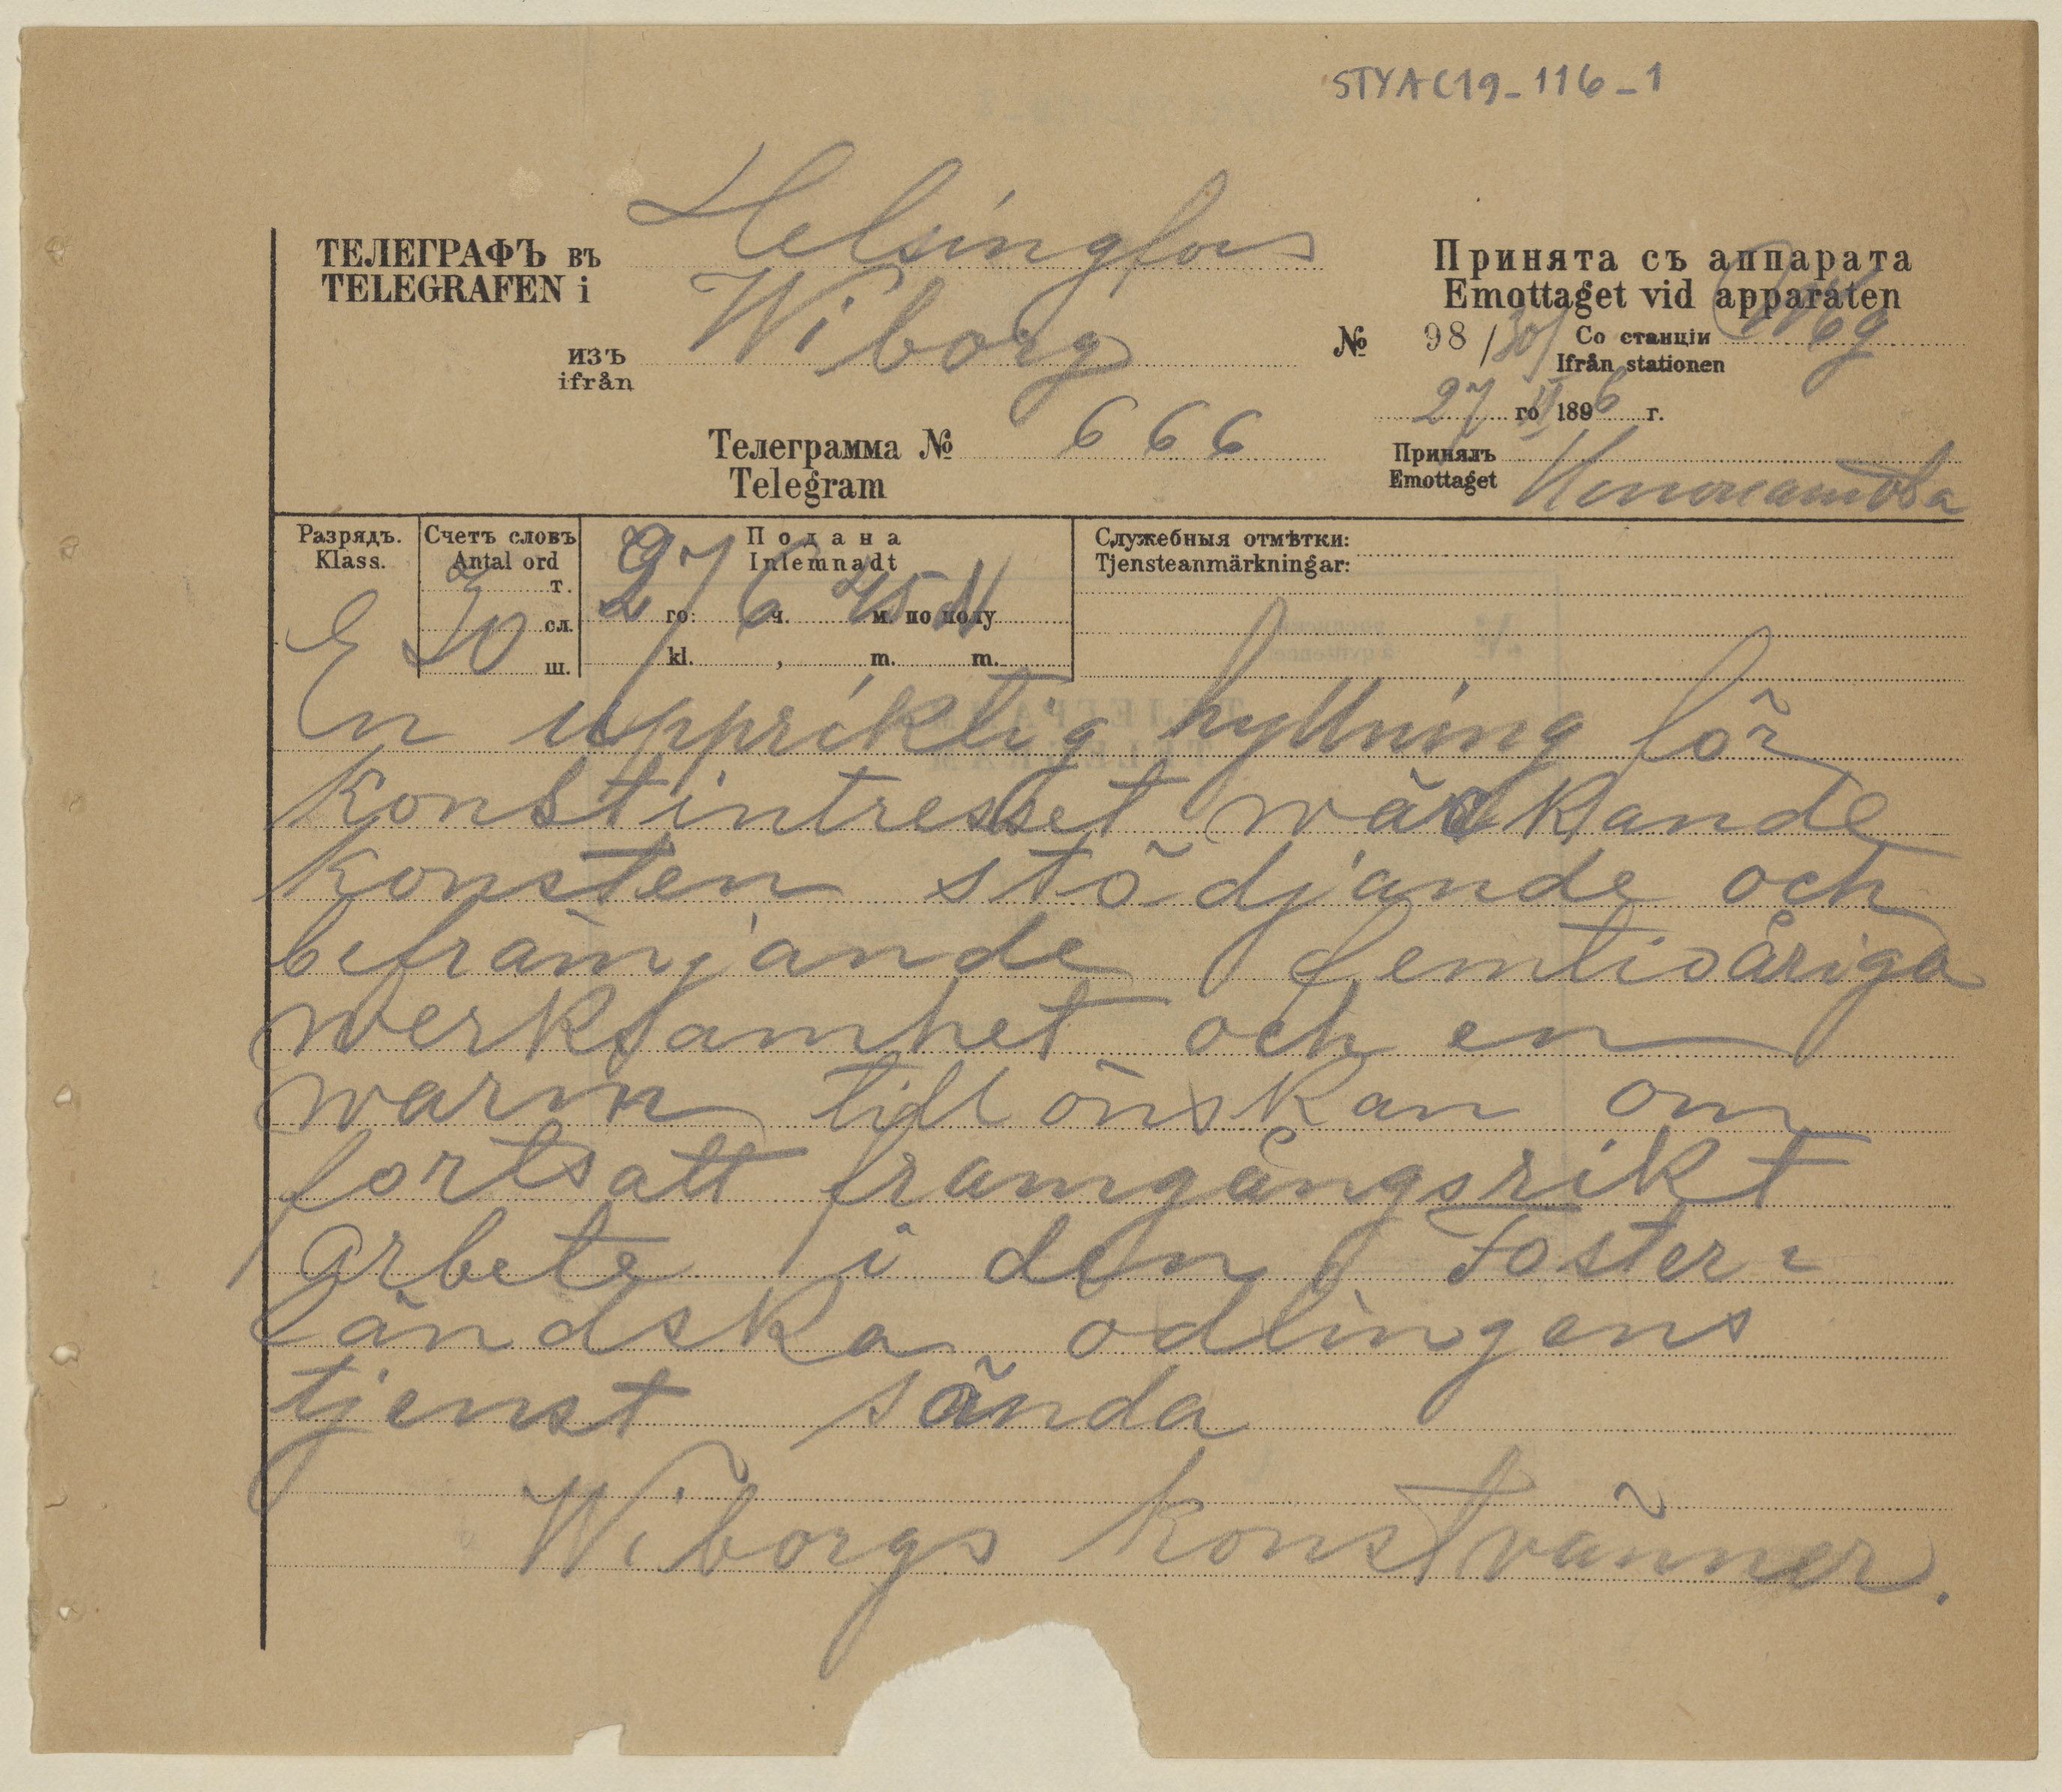 STYAC19-116-1
ТЕЛЕГРАФЪ въ Helsingfors
TELEGRAFEN i
изъ Wiborg
ifrån
Телеграмма № 666
Telegram
Принята съ аппарата
Emottaget vid apparaten
№ 98/30 Со станціи Wbg
Ifrån stationen
27 го II 1896 г.
Принялъ
Emottaget
Разрядъ.
Klass.
E
Счетъ словъ
Antal ord
т.
30 сл.
ш.
Подана
Inlemnadt
27 го 6 ч. 45 м. по полу
kl. , m. m.
Служебныя отмѣтки:
Tjensteanmärkningar:
En uppriktig hyllning för
konstintresset wäckande
konsten stödjande och
befrämjande femtioåriga
werksamhet och en
warm tillönskan om
fortsatt framgångsrikt
arbete i den Foster=
ländska odlingens
tjenst sända
Wiborgs konstvänner.